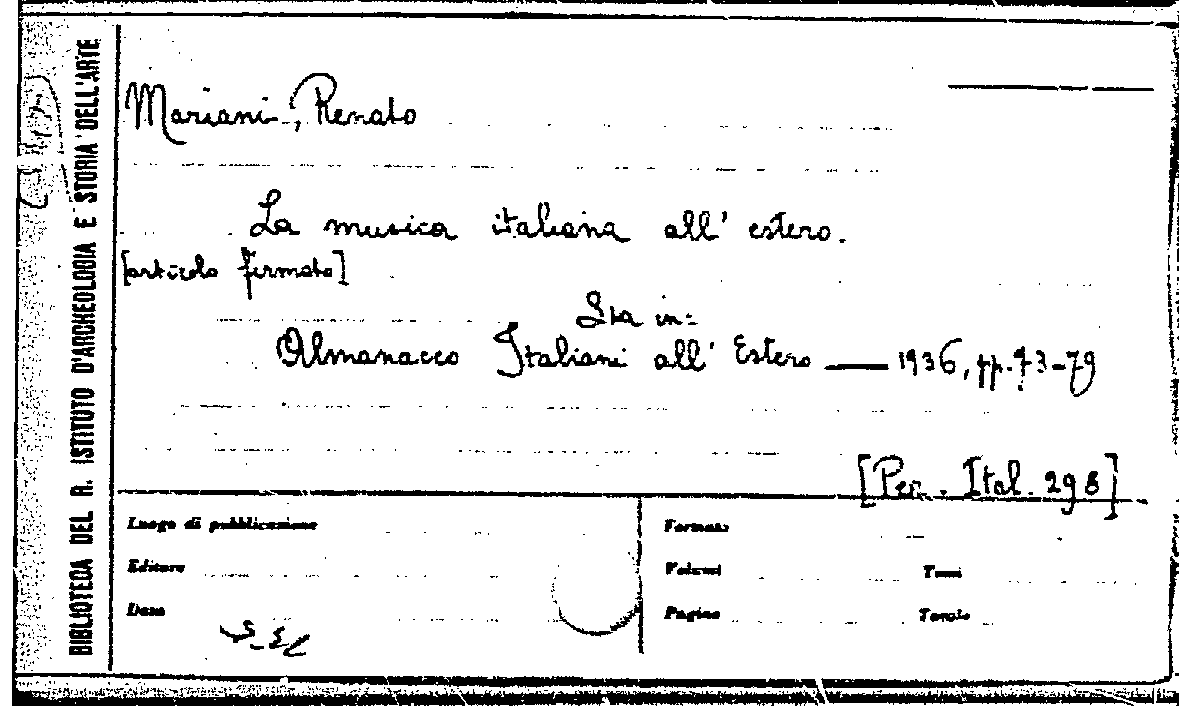 BIBLIOTECA DEL R. ISTITUTO D'ARCHEOLOGIA E STORIA DELL'ARTE
Mariani, Renato
La musica italiana all' estero.
[articolo firmato]
Sta in:
Almanacco Italiani all' Estero — 1936, pp. 73-79
[Per. Ital. 298]
Luogo di pubblicazione
Formato
Editore
Volumi Tomi
Data
Pagine Tavole